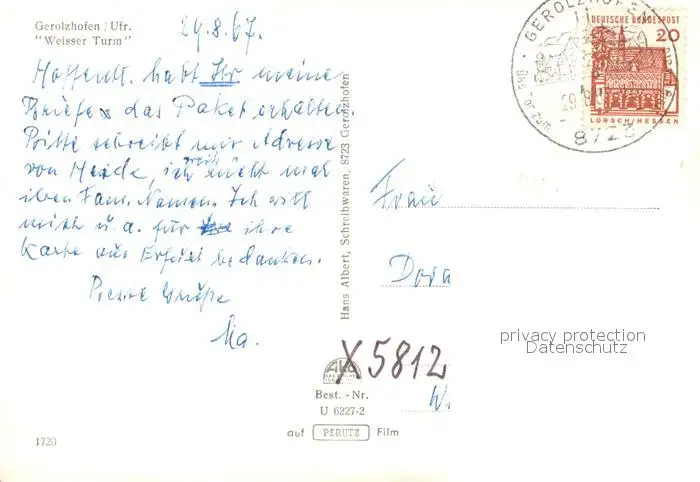 Gerolzhofen / Ufr.
"Weisser Turm"
29.8.67.
Hoffentl. habt Ihr meine
Briefe das Paket erhalten.
Bitte schreibt mir Adresse
von Heide, ich weiß nicht mal
ihren Fam. Namen. Ich will
mich u. a. für ihre
Karte aus Erfurt bedanken.
Grüße
Ma.
Hans Albert, Schreibwaren, 8723 Gerolzhofen
GEROLZHOFEN
Das Tor zum
29.8.
8723
DEUTSCHE BUNDESPOST
20
LORSCH/HESSEN
Frau
Dora
privacy protection
Datenschutz
X 5812
W.
Best. - Nr.
U 6227-2
auf PERUTZ Film
1720